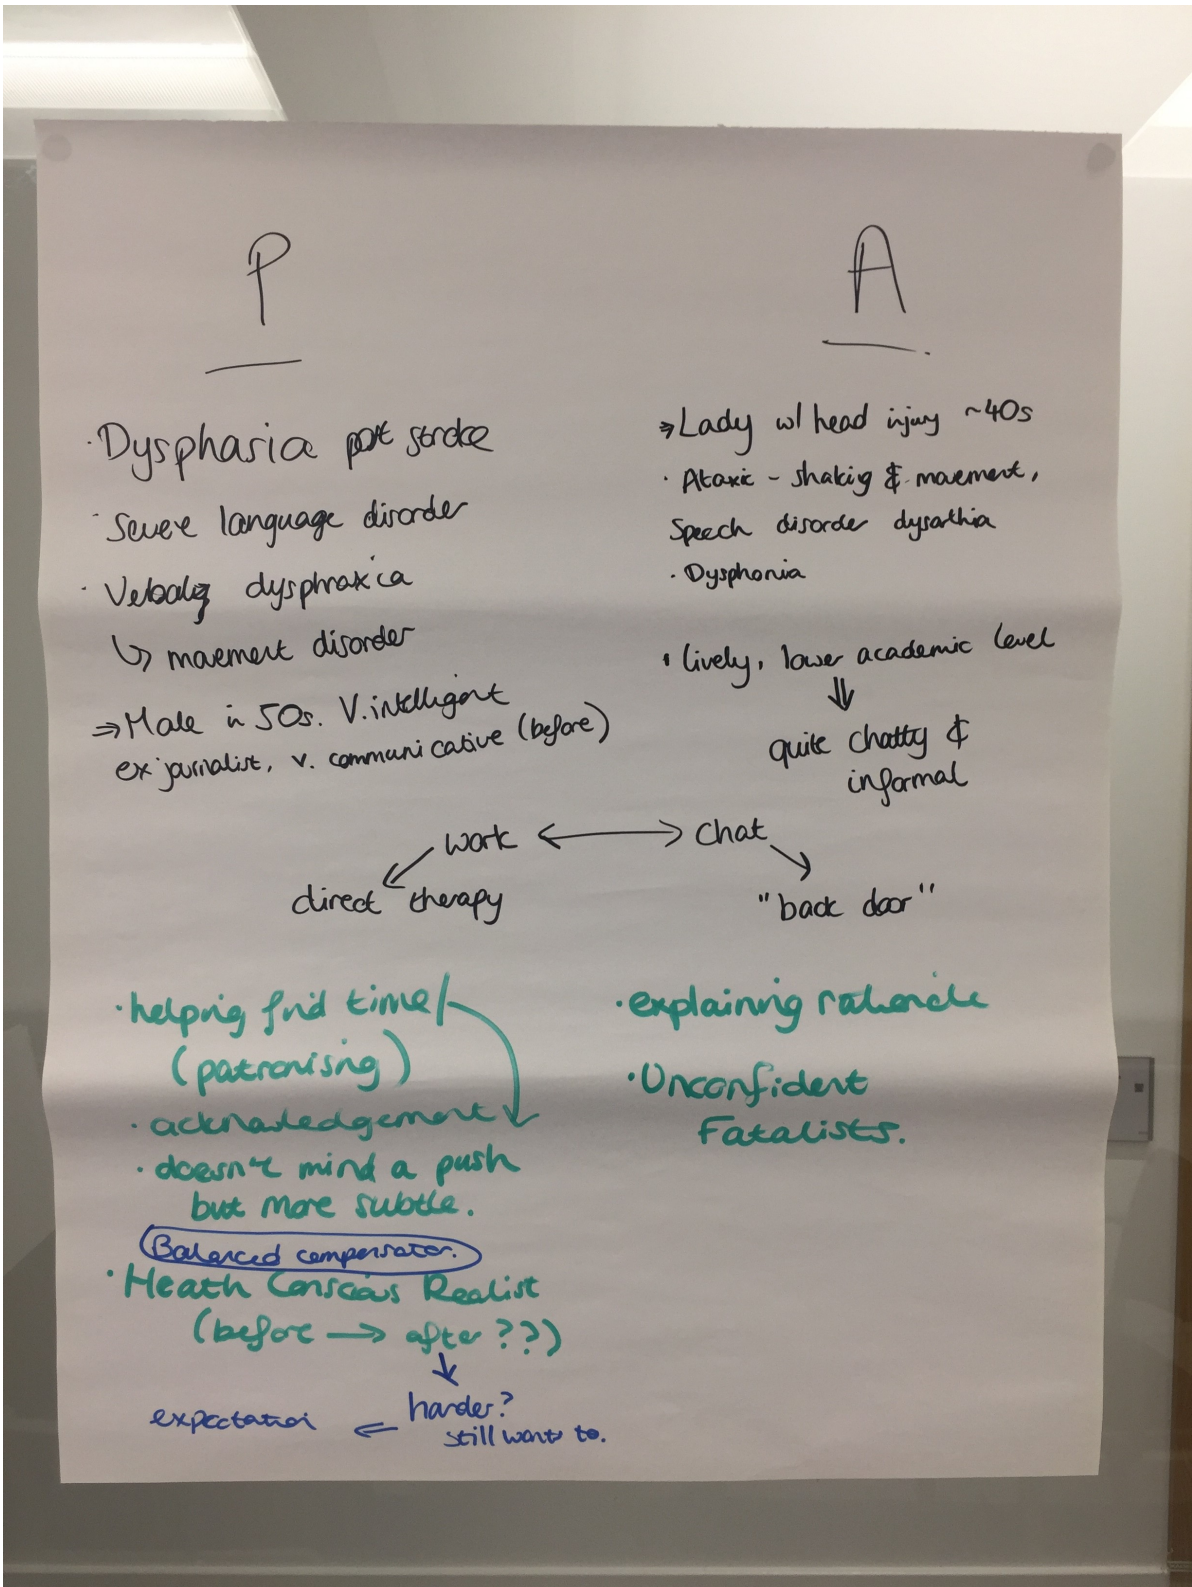 P
· Dysphasia post stroke
- Severe language disorder
· Verbally dysphraxica
↳ movement disorder
⇒ Male in 50s. V.intelligent
ex journalist, v. communicative (before)
A
⇒ Lady w/ head injury ~40s
· Ataxic - shaking & movement,
Speech disorder dysarthia
· Dysphonia
· lively, lower academic level
⇓
quite chatty &
informal
work ⟷ chat
direct therapy
"back door"
· helping find time/
(patronising)
· acknowledgement
· doesn't mind a push
but more subtle.
Balanced compensator.
· Heath Conscious Realist
(before → after ??)
harder?
still wants to.
expectation ⇐
· explaining rationale
· Unconfident
Fatalists.